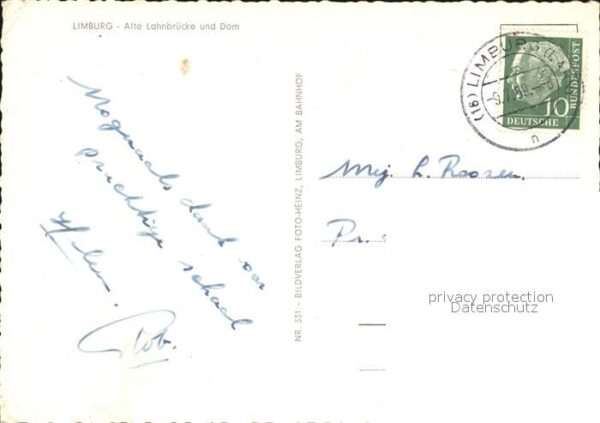 LIMBURG - Alte Lahnbrücke und Dom
Nogmaals dank voor
prachtige schaal
Rob.
NR. 331 - BILDVERLAG FOTO-HEINZ, LIMBURG, AM BAHNHOF
(16) LIMBURG
n
10
DEUTSCHE
BUNDESPOST
Mej. L. Roosen.
Pr.
privacy protection
Datenschutz